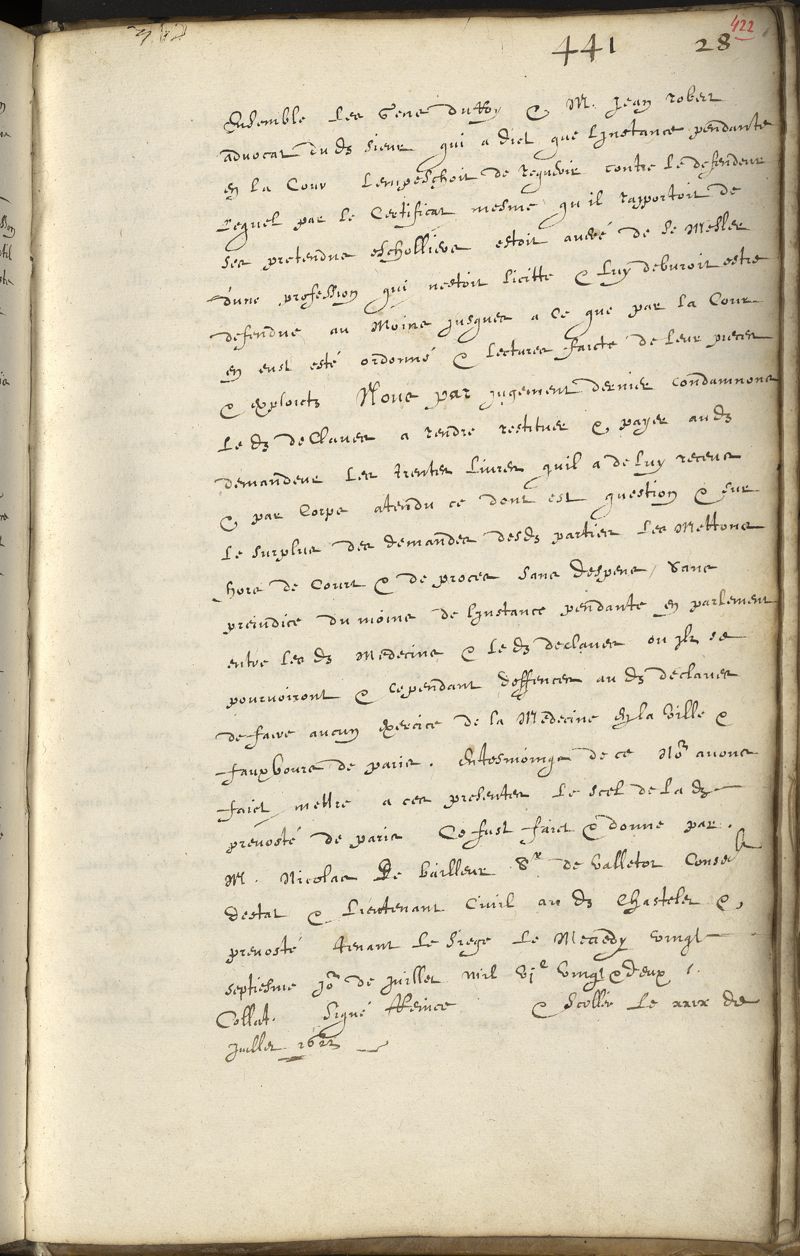 422
441 28
Ensemble les Gens du Roy & M. Jean Robert
advocat dudt sieur qui a dict que linstance pendante
en la Cour lempeschoit de requerir contre le defendeur
lequel par le Certificat mesme quil rapportoit de
ses pretendus escholliers estoit averé de se mesler
dune profession qui nestoit licitte & luy debvroit estre
defendue au moins jusques a ce que par la Cour
en eust esté ordonné & lectures faicte de leur pieces
& exploictz Nous par jugement dernier condamnons
le dt de Claves a rendre restituer & payer audt
demandeur les trentes livres quil a de luy receus
& par Corps atendu ce dont est question & sur
le surplus des demandes desdt parties les Mettons
hors de Court & de proces sans despens / sans
preiudice du moins de linstance pendante en parlement
entre les dt Medecins & le dt de claves ou ilz se
pourvoiront & cependant deffences au dt de claves
de faire aucun exercice de la Medecine en la ville &
fauxbours de paris. En tesmoing de ce Nos avons
faict mettre a ces presentes le scel de la dt
prevosté de paris Ce fust faict & donne par.
M. Nicolas De bailleur Sr de Valletot Conser
destat & Lieutenant Civil audt Chastelet &,
prevosté tenant le siege le Mecredy vingt
septiesme jor de juillet mil vjc vingt & deux.
Collat. Signé & Scellée le xxix de
juillet 1622